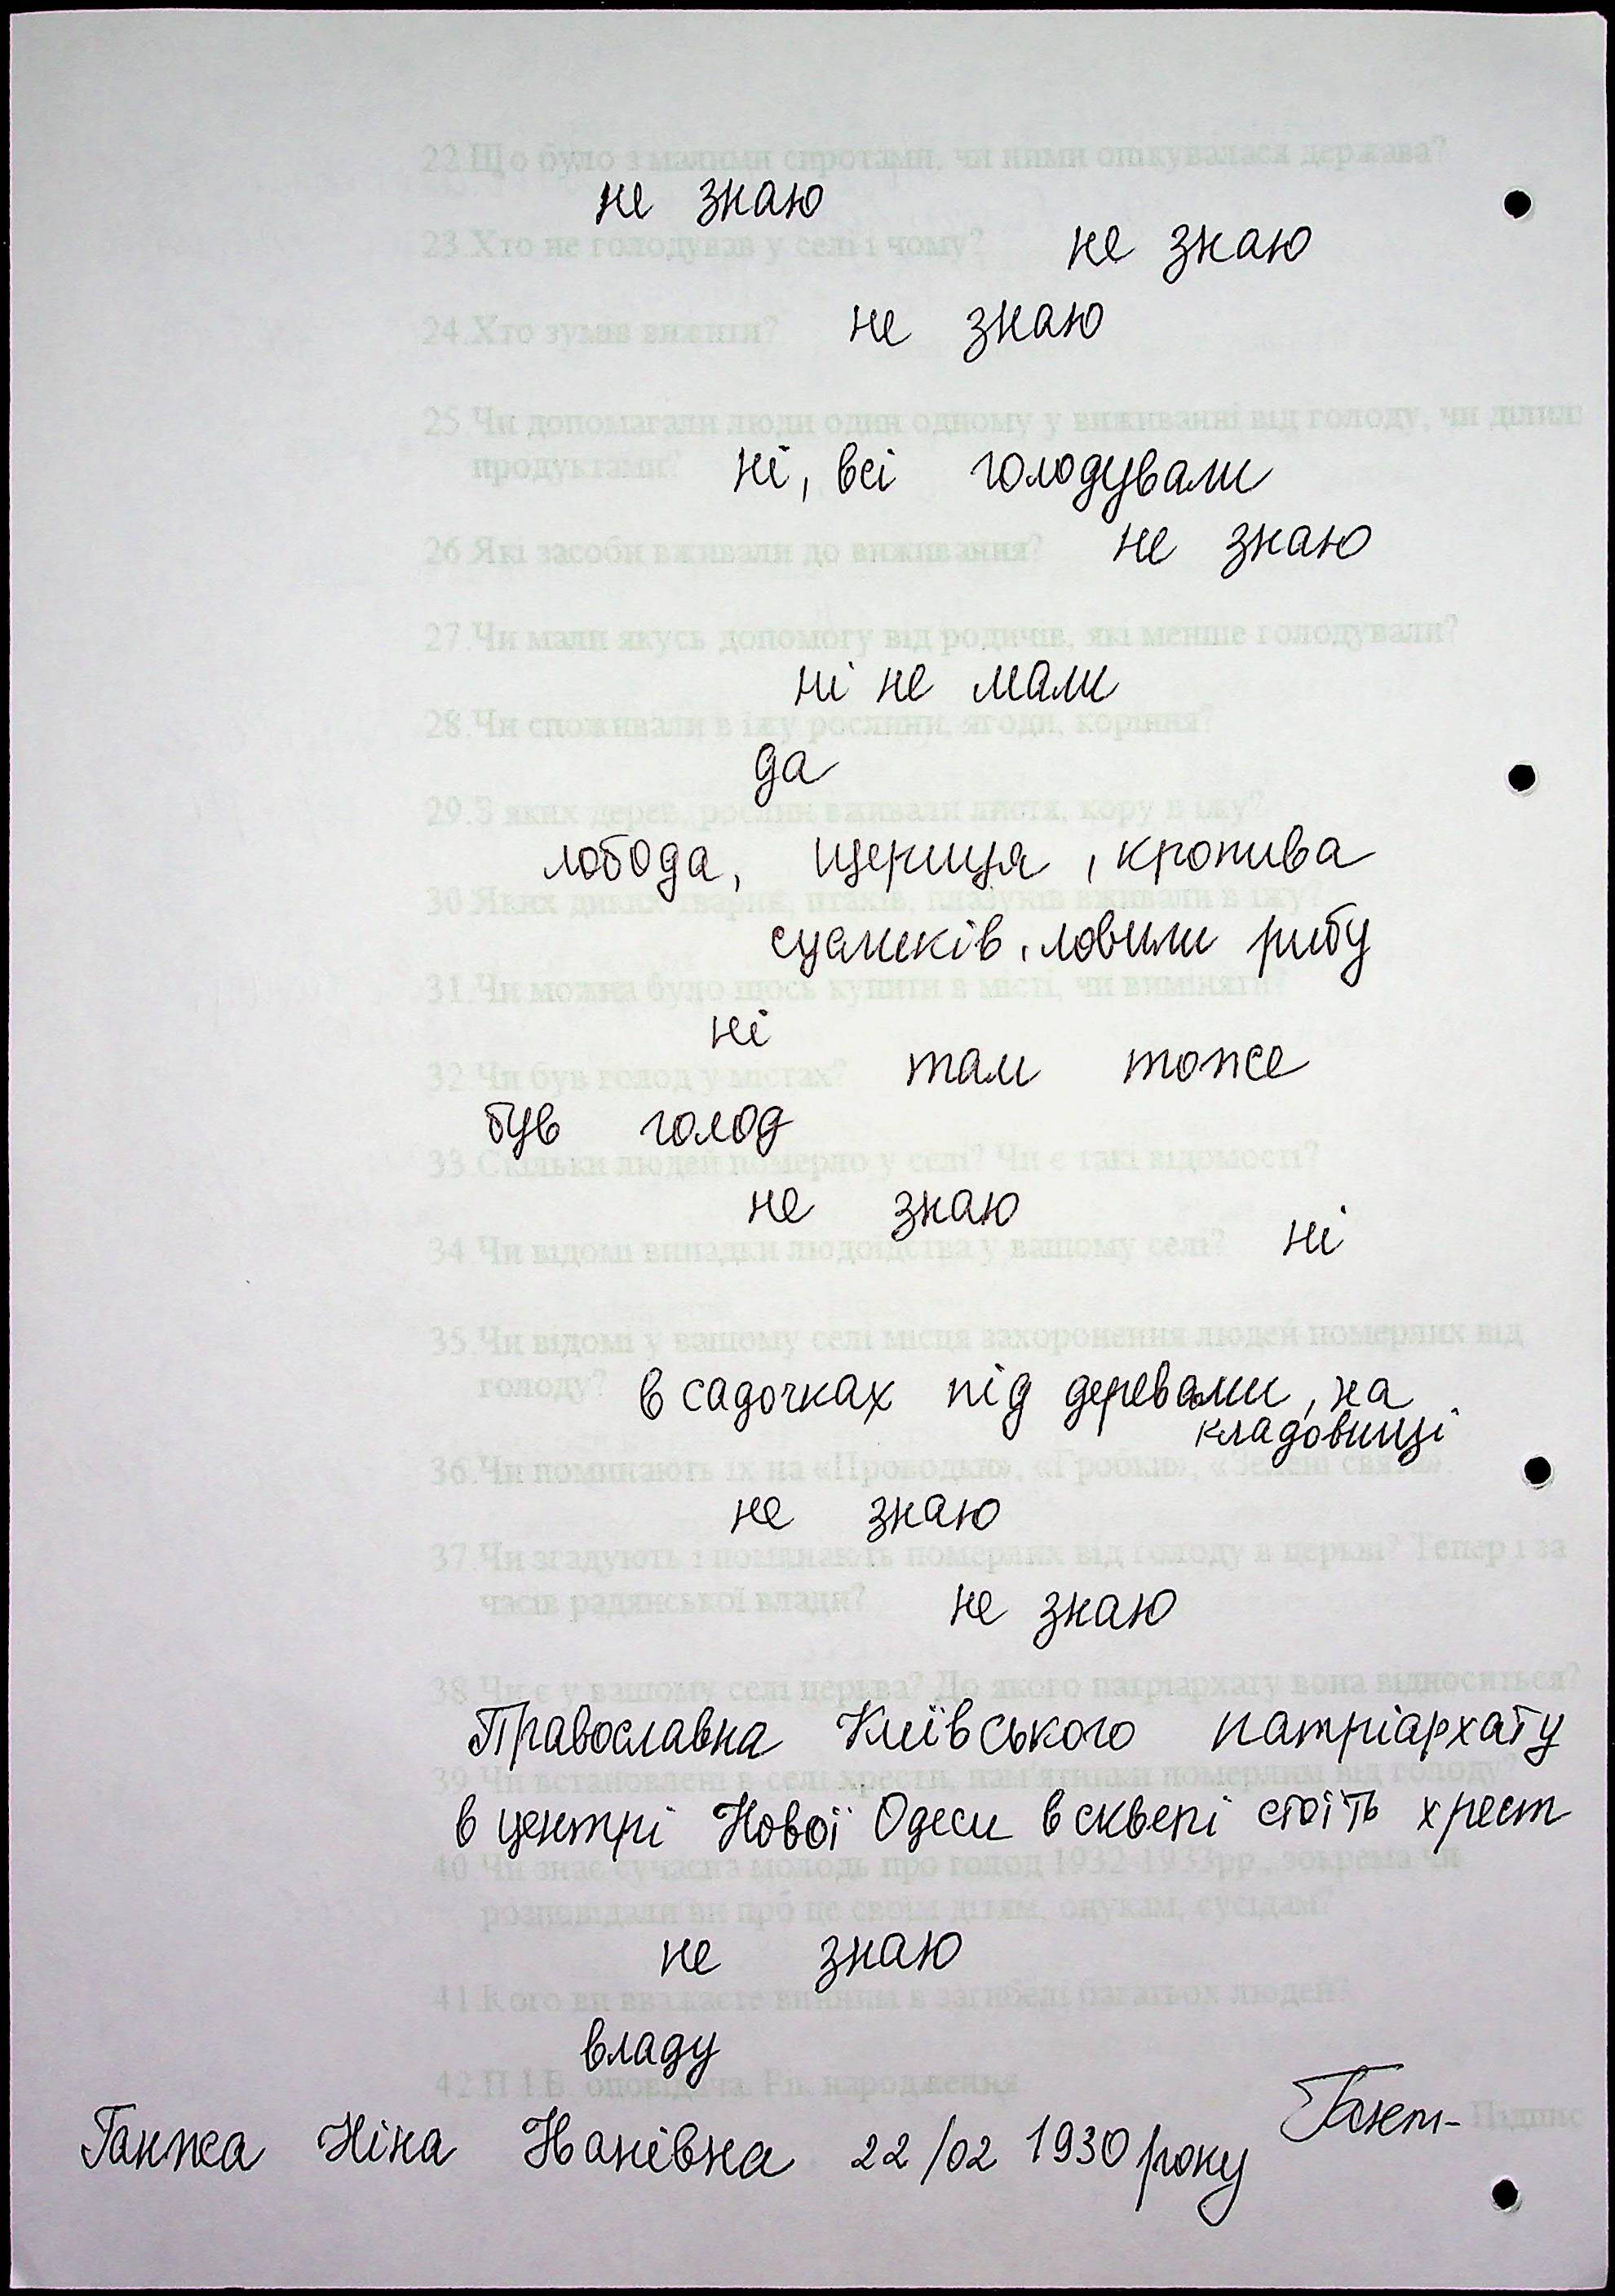 22.Що було з малими сиротами, чи ними опікувалася держава?
не знаю
23.Хто не голодував у селі і чому? не знаю
24.Хто зумів вижити? не знаю
25.Чи допомагали люди один одному у виживанні від голоду, чи ділились
продуктами? ні, всі голодували
26.Які засоби вживали до виживання? не знаю
27.Чи мали якусь допомогу від родичів, які менше голодували?
ні не мали
28.Чи споживали в їжу рослини, ягоди, коріння?
да
29.З яких дерев, рослин вживали листя, кору в їжу?
лобода, щериця, кропива
30.Яких диких тварин, птахів, плазунів вживали в їжу?
сусликів, ловили рибу
31.Чи можна було щось купити в місті, чи виміняти?
ні
32.Чи був голод у містах? там тоже
був голод
33.Скільки людей померло у селі? Чи є такі відомості?
не знаю
34.Чи відомі випадки людоїдства у вашому селі? ні
35.Чи відомі у вашому селі місця захоронення людей померлих від
голоду? в садочках під деревами, на
кладовищі
36.Чи поминають їх на «Проводки», «Гробки», «Зелені свята».
не знаю
37.Чи згадують і поминають померлих від голоду в церкві? Тепер і за
часів радянської влади? не знаю
38.Чи є у вашому селі церква? До якого патріархату вона відноситься?
Православна Київського патріархату
39.Чи встановлені в селі хрести, пам'ятники померлим від голоду?
в центрі Нової Одеси в сквері стоїть хрест
40.Чи знає сучасна молодь про голод 1932-1933рр., зокрема чи
розповідали ви про це своїм дітям, онукам, сусідам?
не знаю
41.Кого ви вважаєте винним в загибелі багатьох людей?
владу
42.П.І.Б. оповідача. Рік народження
Підпис
Ганжа Ніна 22/02 1930 року